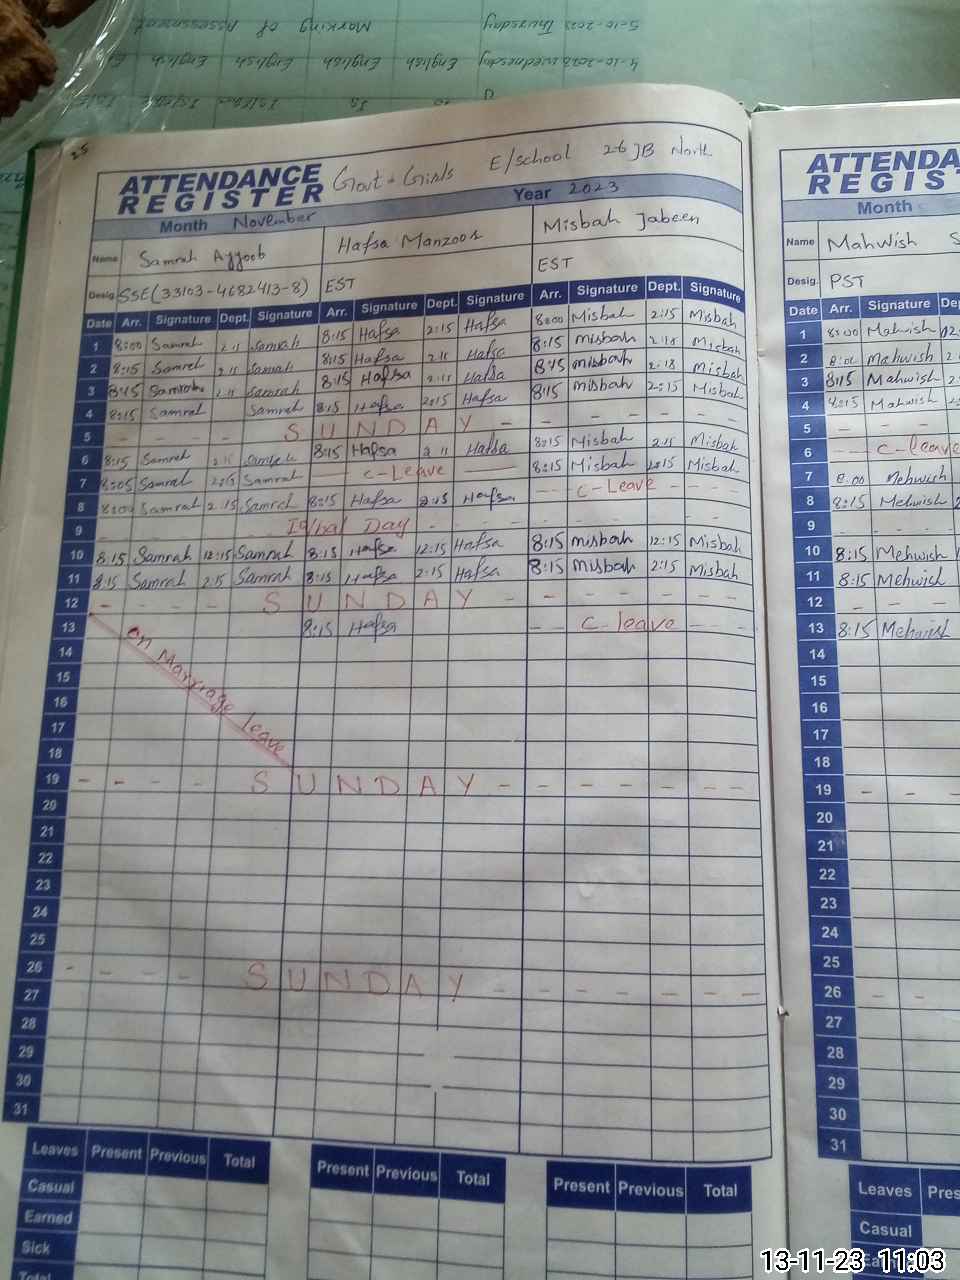 5-10-2023 Thursday Marking of Assessment
4-10-2023 wednesday English English English English
25
ATTENDANCE REGISTER Govt. Girls E/school 26 JB North
Month November Year 2023
Name Samrah Ayyoob Hafsa Manzoor Misbah Jabeen
Desig. SSE(33103-4682413-8) EST EST
Date Arr. Signature Dept. Signature Arr. Signature Dept. Signature Arr. Signature Dept. Signature
1 8:00 Samrah 2:11 Samrah 8:15 Hafsa 2:15 Hafsa 8:00 Misbah 2:15 Misbah
2 8:15 Samrah 2:11 Samrah 8:15 Hafsa 2:11 Hafsa 8:15 misbah 2:18 Misbah
3 8:45 Samrah 2:11 Samrah 8:15 Hafsa 2:11 Hafsa 8:45 misbah 2:18 Misbah
4 8:15 Samrah Samrah 8:15 Hafsa 2:15 Hafsa 8:15 misbah 2:15 Misbah
5 - - - - SUNDAY - - - - - -
6 8:15 Samrah 2:15 Samrah 8:15 Hafsa 2:11 Hafsa 8:15 Misbah 2:15 Misbah
7 8:05 Samrah 2:15 Samrah c-Leave 8:15 Misbah 2:15 Misbah
8 8:00 Samrah 2:15 Samrah 8:15 Hafsa 2:15 Hafsa - - c-Leave - -
9 Iqbal Day - - - -
10 8:15 Samrah 12:15 Samrah 8:15 Hafsa 12:15 Hafsa 8:15 misbah 12:15 Misbah
11 8:15 Samrah 2:15 Samrah 8:15 Hafsa 2:15 Hafsa 8:15 misbah 2:15 Misbah
12 - - - - SUNDAY - - - - - - -
13 8:15 Hafsa - - c-leave - -
on Marriage leave
14
15
16
17
18
19 - - - - SUNDAY - - - - - - -
20
21
22
23
24
25
26 - - - - SUNDAY - - - - - - -
27
28
29
30
31
Leaves Present Previous Total Present Previous Total Present Previous Total
Casual
Earned
Sick
Total
ATTENDA
REGIST
Month
Name Mahwish S
Desig. PST
Date Arr. Signature De
1 8:00 Mahwish 12
2 8:00 Mahwish 2
3 8:15 Mahwish
4 8:15 Mahwish
5 - - -
6 --- c-leave
7 8:00 Mehwish
8 8:15 Mehwish
9 - - -
10 8:15 Mehwish
11 8:15 Mehwish
12 - - -
13 8:15 Mehwish
14
15
16
17
18
19 - - -
20
21
22
23
24
25
26 - -
27
28
29
30
31
Leaves Pres
Casual
13-11-23 11:03